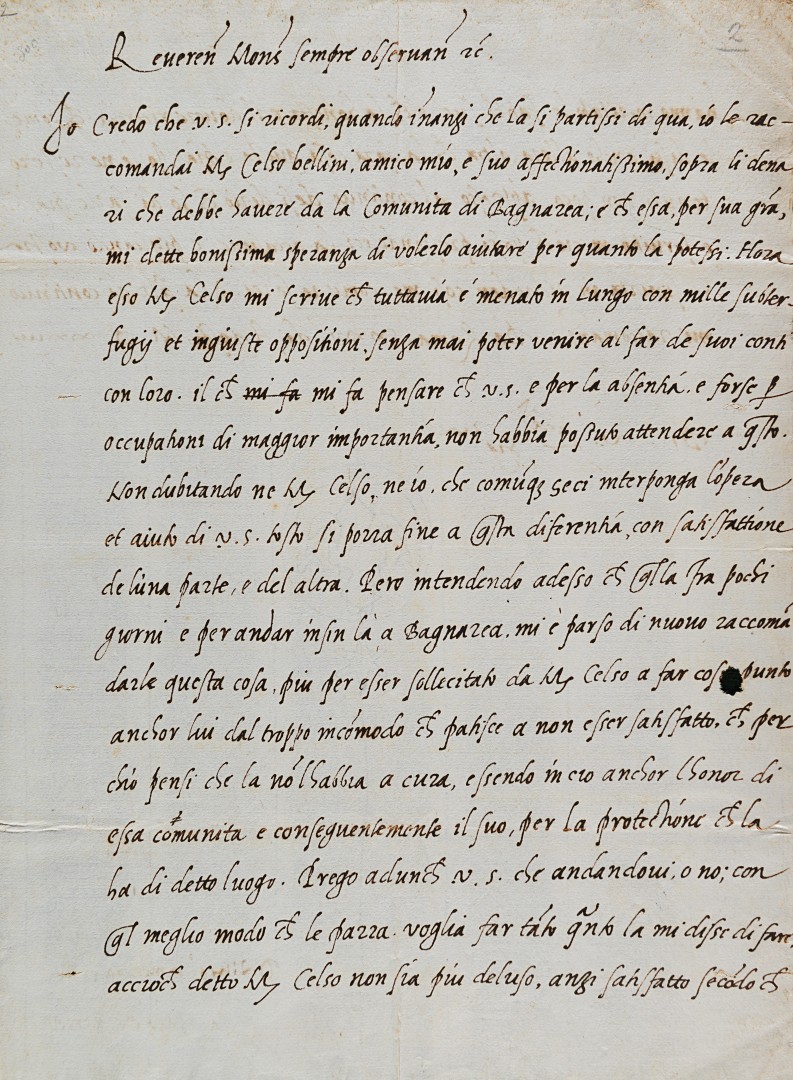 2
2
Reveren Mons sempre observan rc.
Io Credo che v. s. si ricordi, quando inanzi che la si partissi di qua, io le rac-
comandai M Celso bellini, amico mio, e suo affectionatissimo, sopra li dena
ri che debbe havere da la Comunita di Bagnarea; e ch essa, per sua gra,
mi dette bonissima speranza di volerlo aiutare per quanto la potessi. Hora
esso M Celso mi scrive ch tuttavia è menato in lungo con mille subter-
fugij et ingiuste oppositioni, senza mai poter venire al far de suoi conti
con loro. il ch mi fa mi fa pensare ch v.s. e per la absentia, e forse p
occupationi di maggior importantia, non habbia possuto attendere a qsto.
Non dubitando ne M Celso, ne io, che comuq se ci interponga l'opera
et aiuto di v.s. tosto si porra fine a qsta diferentia, con satisfattione
de luna parte, e del altra. Pero intendendo adesso ch qlla fra pochi
giorni e per andar insin là a Bagnarea, mi è parso di nuovo raccomā
darle questa cosa, piu per esser sollecitato da M Celso a far cosi, punto
anchor lui dal troppo incōmodo ch patisce a non esser satisfatto, ch per
chio pensi che la nō lhabbia a cura, essendo in cio anchor lhonor di
essa comunita e conseguentemente il suo, per la protectione ch la
ha di detto luogo. Prego adunch v. s. che andandovi, o no; con
ql meglio modo ch le parra, voglia far tāto qnto la mi disse di fare,
accioch detto M Celso non sia piu deluso, anzi satisfatto secōdo ch